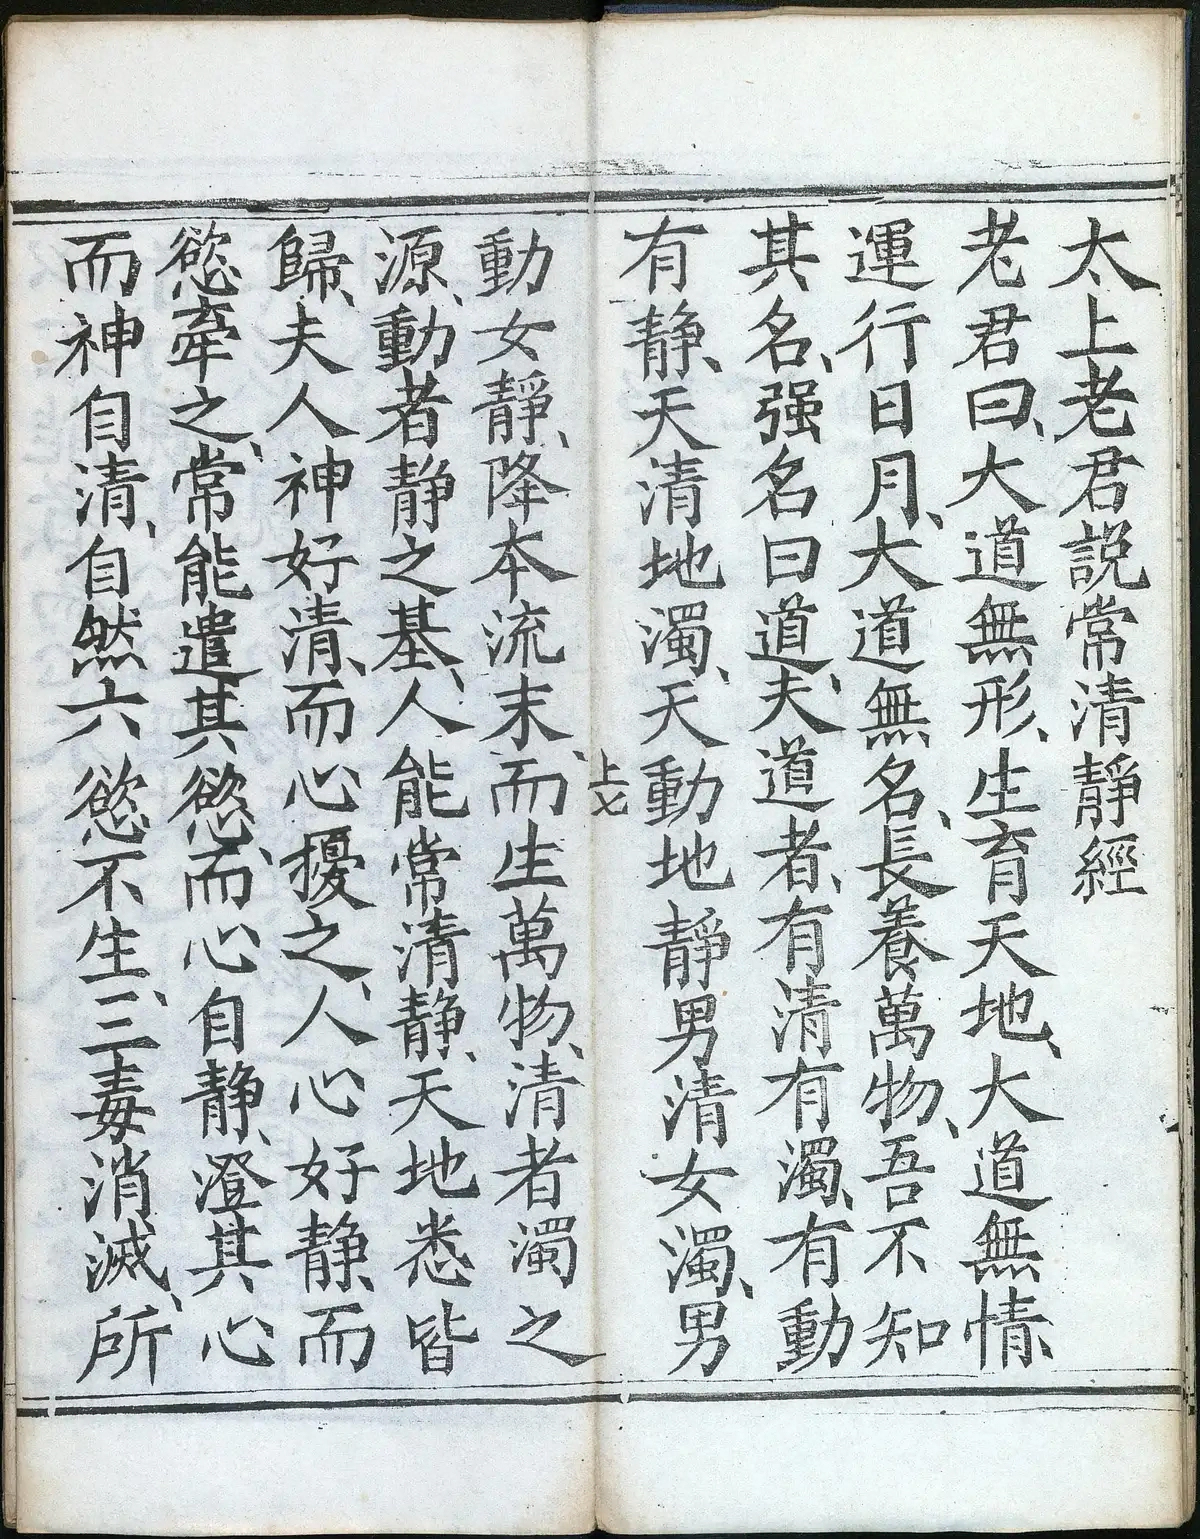 太上老君説常清靜經
老君曰、大道無形、生育天地、大道無情
運行日月、大道無名、長養萬物、吾不知
其名、强名曰道、夫道者、有清有濁、有動
有静、天清地濁、天動地靜男清女濁、男
上七
動女靜、降本流末、而生萬物、清者濁之
源、動者静之基、人能常清静、天地悉皆
歸、夫人神好清、而心擾之、人心好静、而
慾牽之、常能遣其慾、而心自静、澄其心
而神自清、自然六慾不生、三毒消滅、所